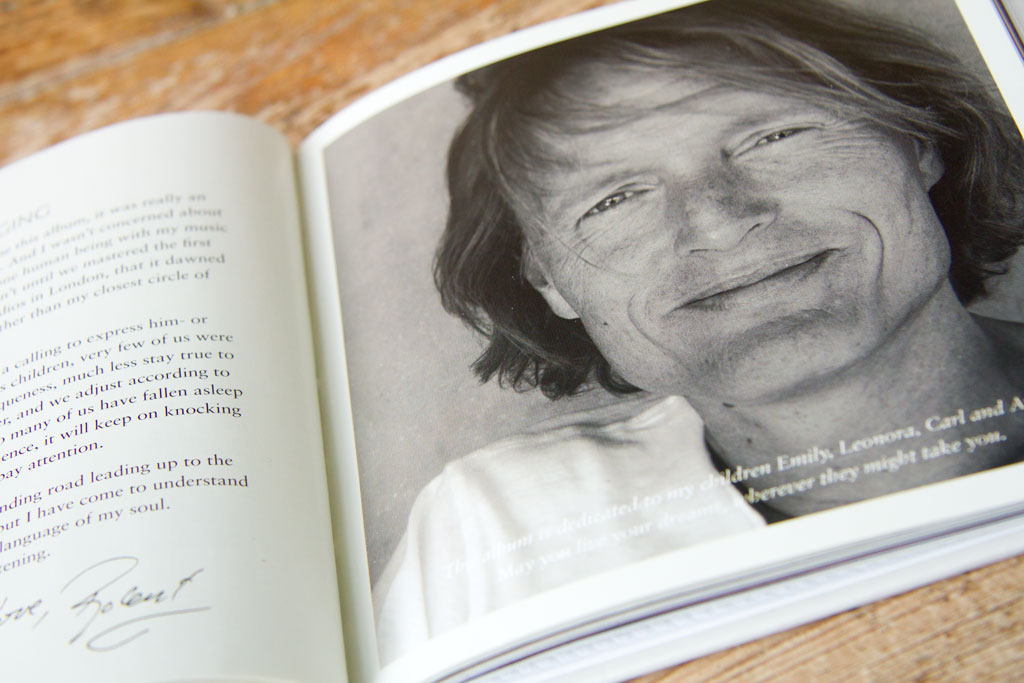 GING
this album, it was really an
And I wasn't concerned about
one human being with my music
until we mastered the first
in London, that it dawned
than my closest circle of
a calling to express him- or
children, very few of us were
much less stay true to
and we adjust according to
many of us have fallen asleep
it will keep on knocking
pay attention.
road leading up to the
but I have come to understand
language of my soul.
Love,
This album is dedicated to my children Emily, Leonora, Carl and A
May you live your dreams, wherever they might take you.